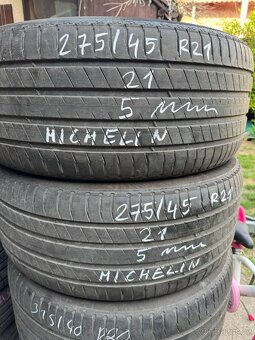 275/45 R21
21
5 mm
MICHELIN
275/45 R21
21
5 mm
MICHELIN
315/40 R21